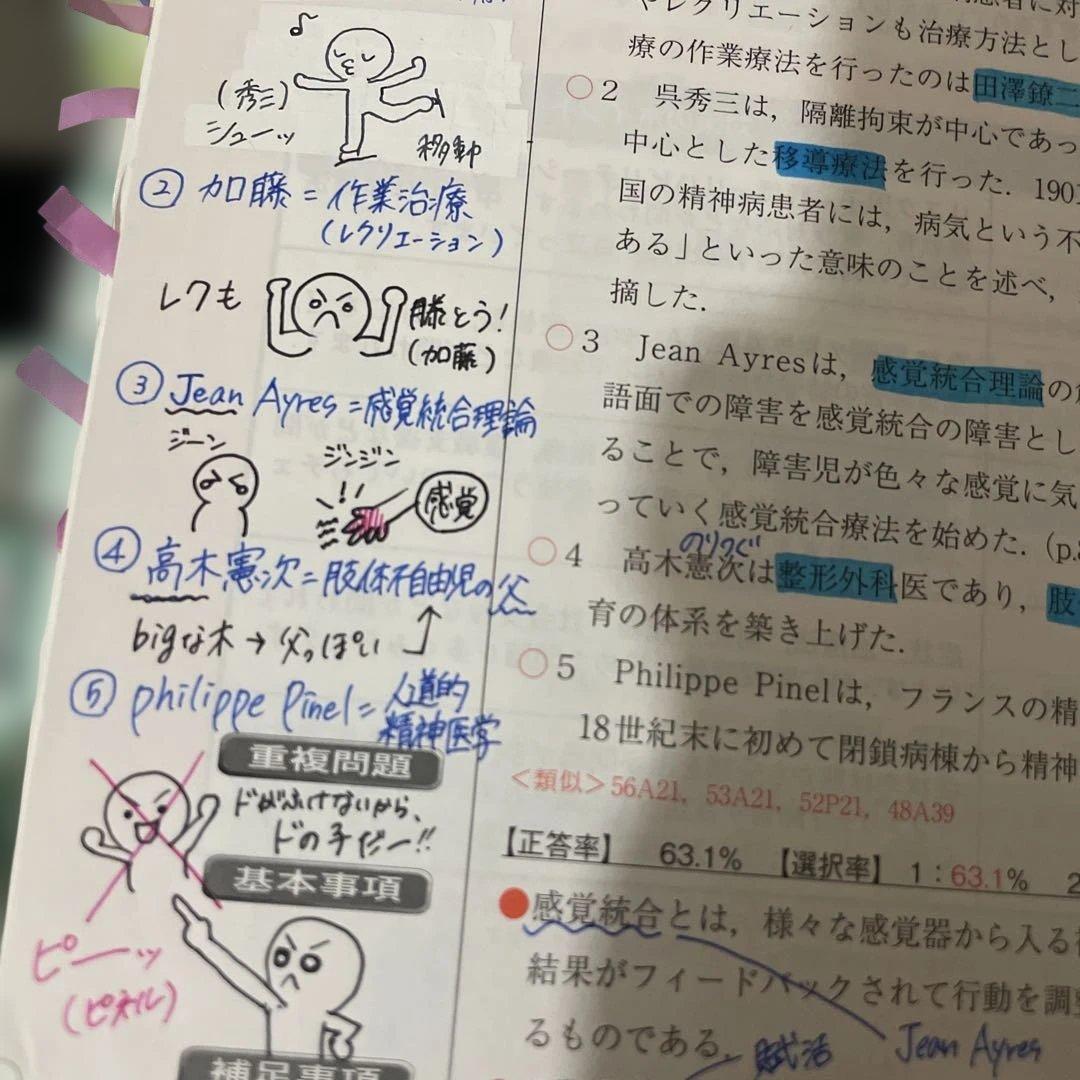 ♪
(秀三)
シューッ
移動
② 加藤=作業治療
(レクリエーション)
レクも
勝とう!
(加藤)
③ Jean Ayres=感覚統合理論
ジーン
ジンジン
感覚
④ 高木憲次=肢体不自由児の父
bigな木→父っぽい
⑤ philippe Pinel=人道的
精神医学
重複問題
ドの子だー!!
基本事項
ピーッ
(ピネル)
補足事項
やレクリエーションも治療方法とし
療の作業療法を行ったのは田澤鐐二
○2 呉秀三は,隔離拘束が中心であっ
中心とした移導療法を行った.1901
国の精神病患者には,病気という不
ある」といった意味のことを述べ,
摘した.
○3 Jean Ayresは,感覚統合理論の
語面での障害を感覚統合の障害とし
ることで,障害児が色々な感覚に気
っていく感覚統合療法を始めた.(p.
のりつぐ
○4 高木憲次は整形外科医であり,肢
育の体系を築き上げた.
○5 Philippe Pinelは,フランスの精
18世紀末に初めて閉鎖病棟から精神
<類似>56A21, 53A21, 52P21, 48A39
【正答率】 63.1% 【選択率】 1:63.1% 2
●感覚統合とは,様々な感覚器から入る
結果がフィードバックされて行動を調整
るものである.
賦活
Jean Ayres